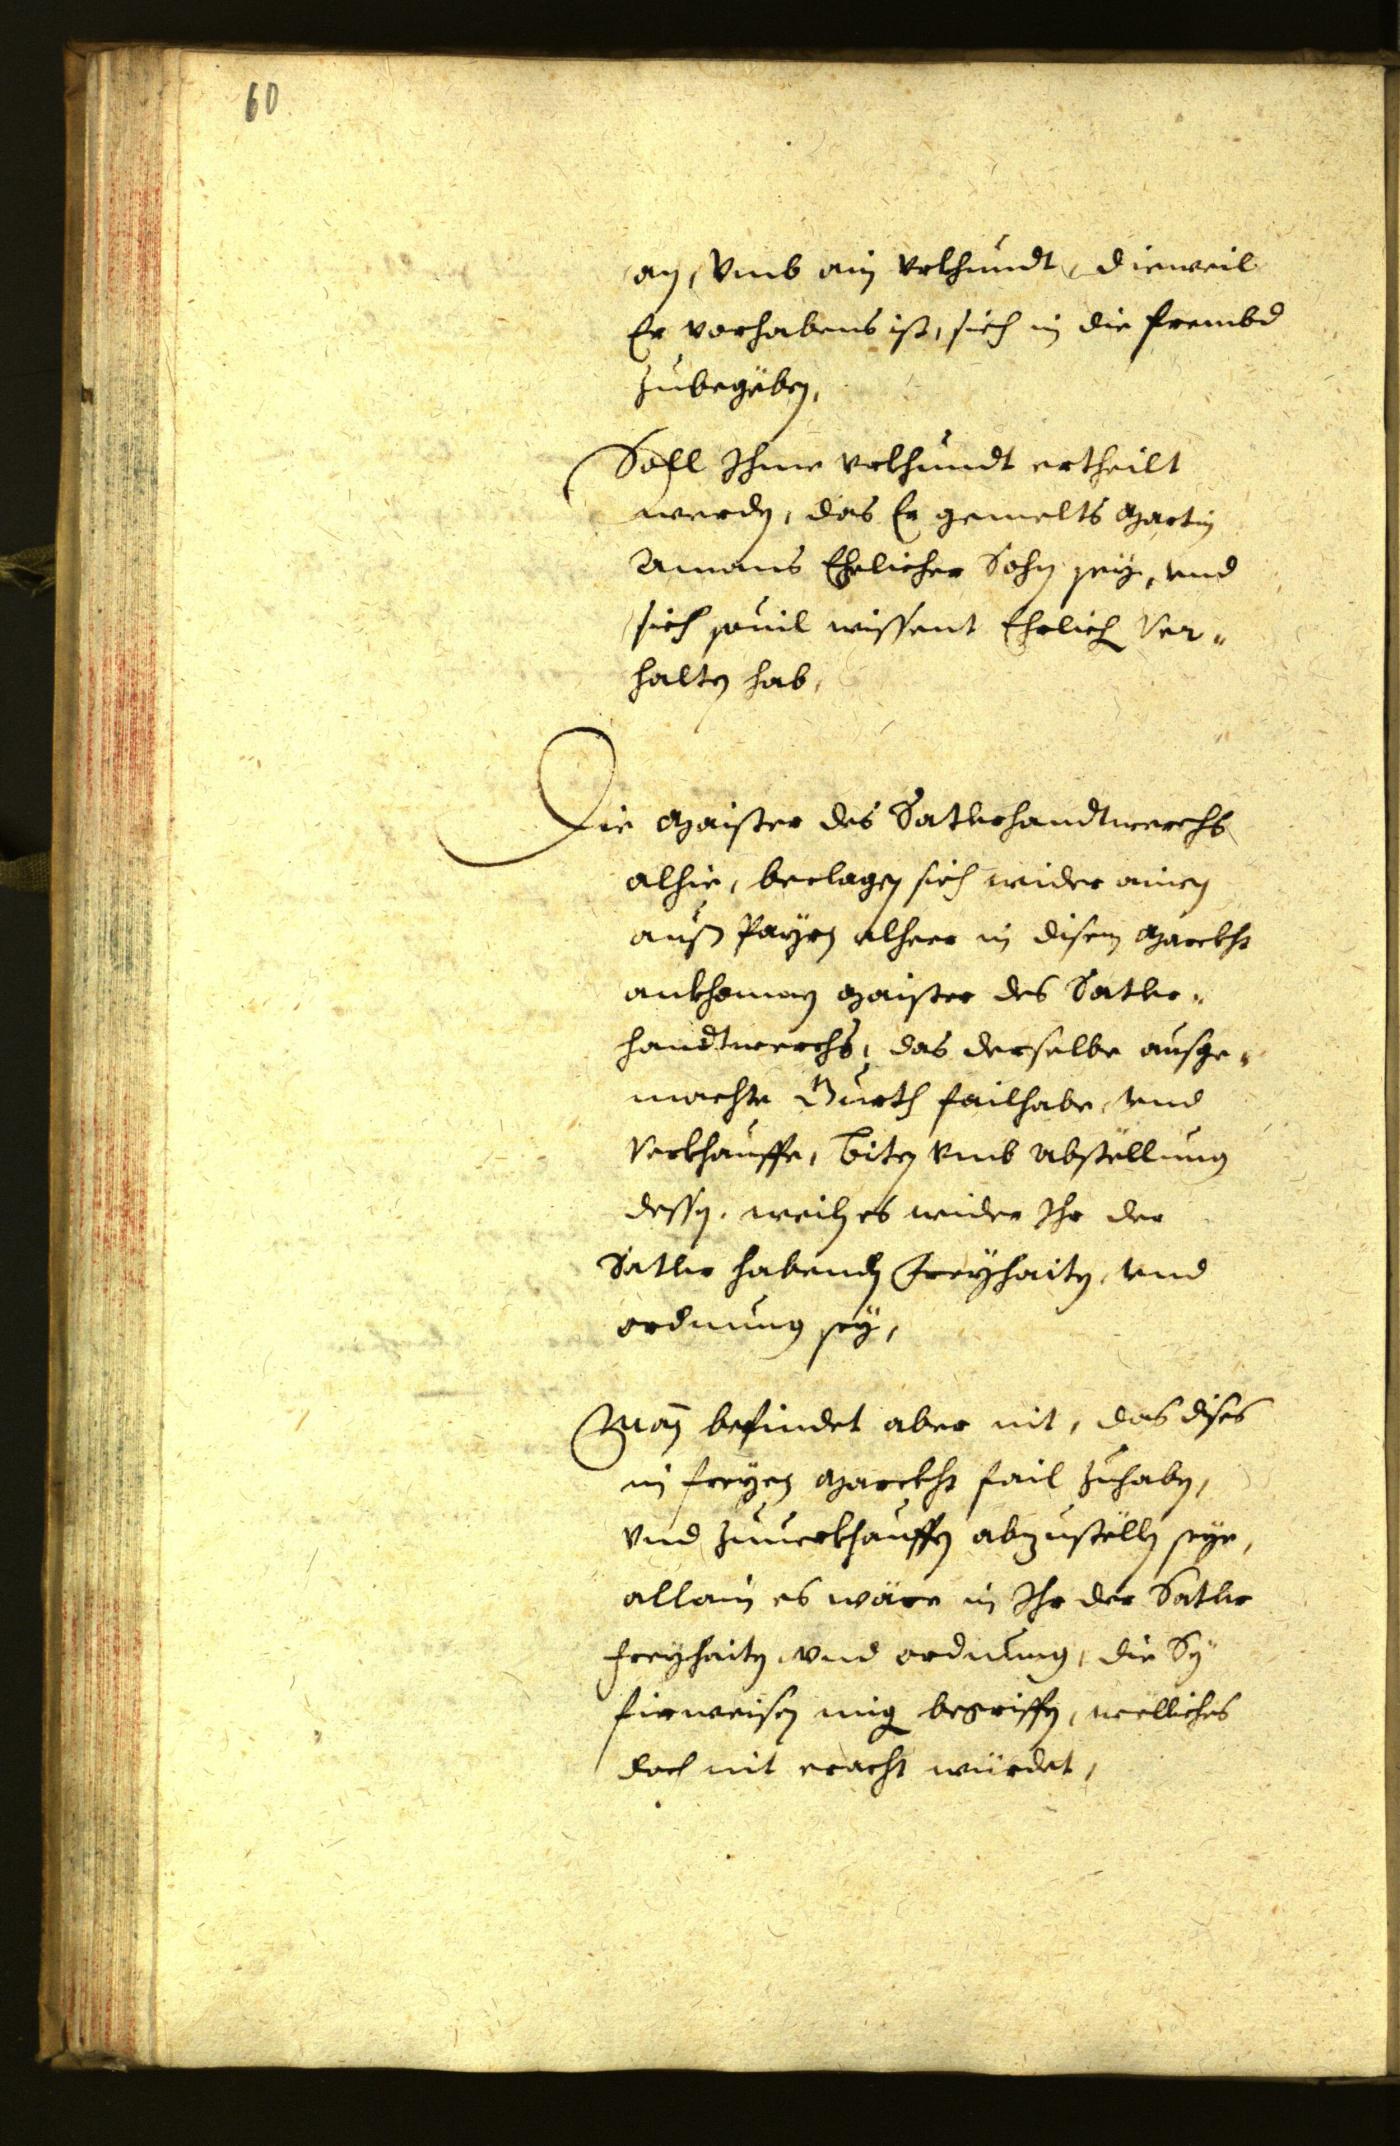 60
an, vmb ain vrkhundt, dieweil
Er vorhabens ist, sich in die frembd
zubegeben,
Soll Ihme vrkhundt ertheilt
werden, das Er gemelts Martin
Amans Ehelicher Sohn sey, vnd
sich souil wissent Ehrlich ver-
halten hab,
Die Maister des Satlerhandtwerchs
alhie, beclagen sich wider ainen
auß Payrn alheer in disem Marckht
ankhomen Maister des Satler-
handtwerchs, das derselbe ausge-
machte Gurth failhabe, vnd
verkhauffe, biten vmb Abstellung
dessen, weiln es wider Ihr der
Satler habenden Freyhaiten, vnd
ordnung sey,
Man befindet aber nit, das dises
in freyen Marckht fail zuhaben,
vnd zuuerkhauffen abzustellen seye,
allain es wäre in Ihr der Satler
freyhaiten vnd ordnung, die Sy
fürweisen begriffen, welliches
doch nit eracht würdet,